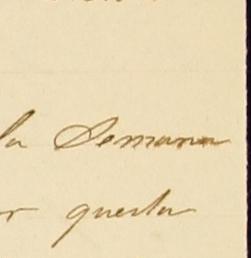 la Semana
or questa